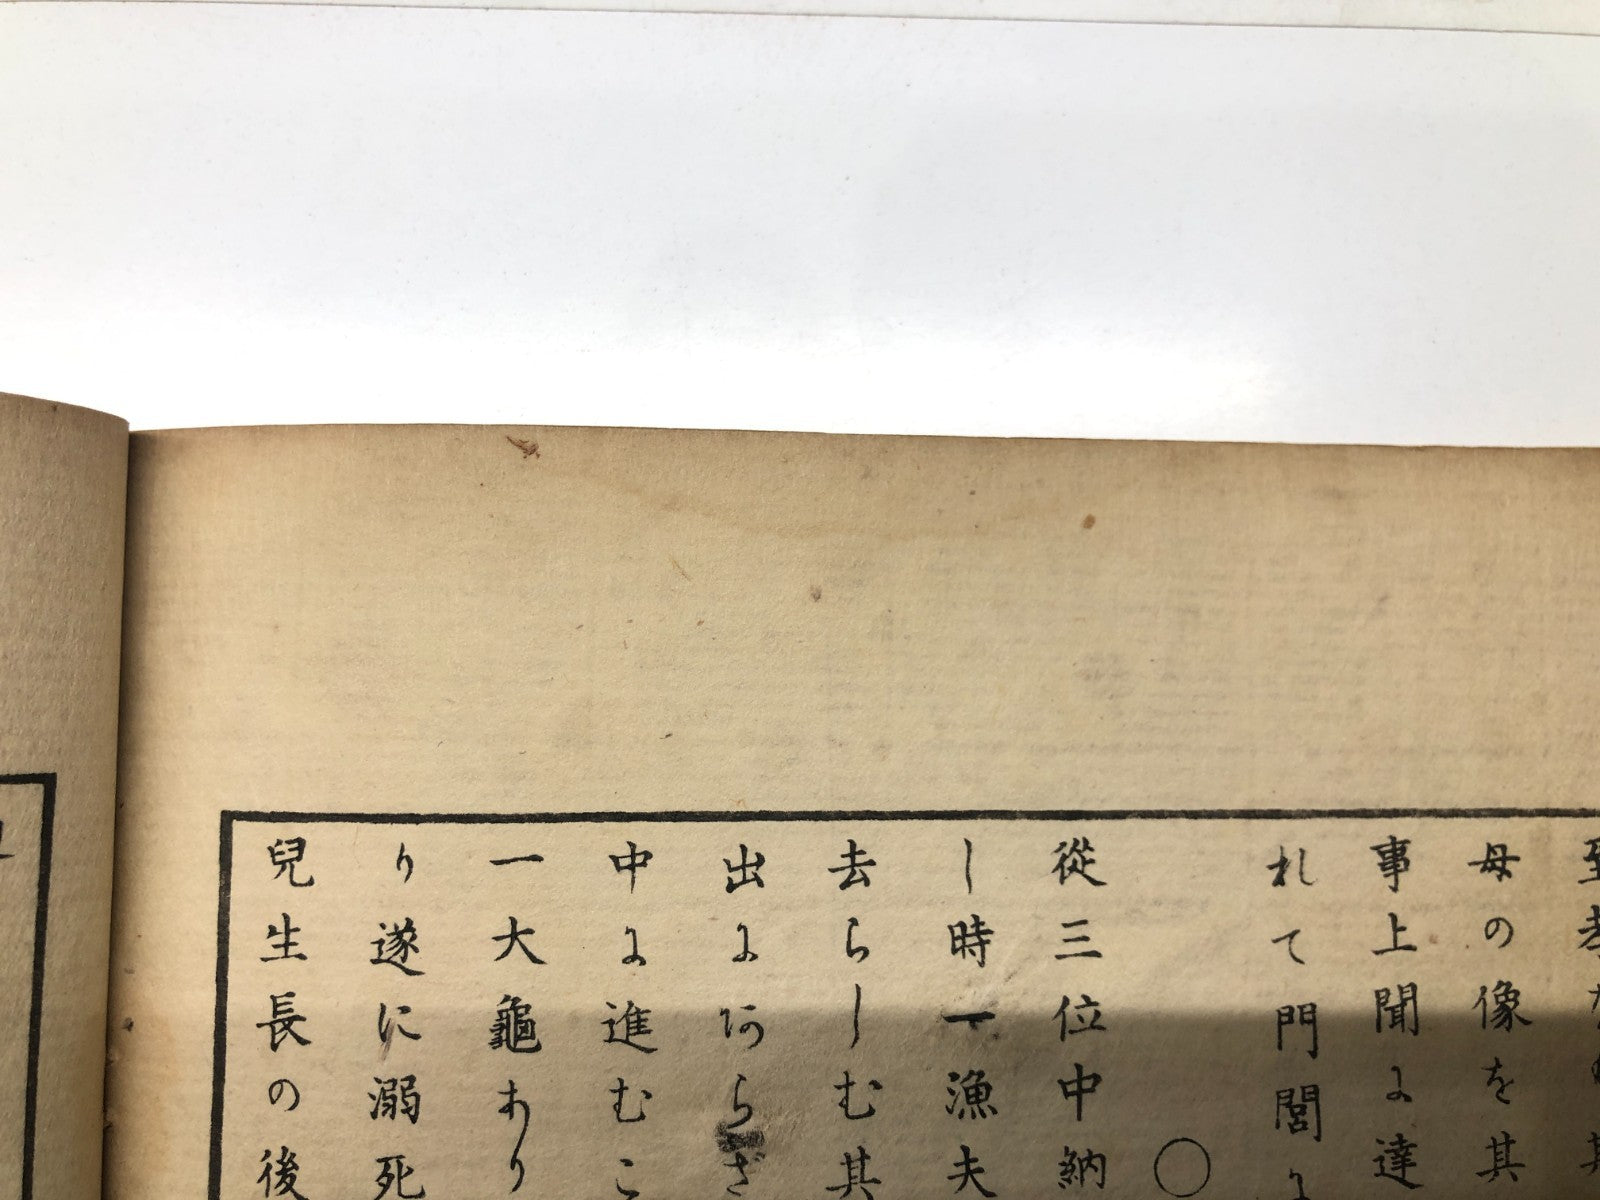 至孝
母の像を其
事上聞よ達
れて門閭よ
○
從三位中納
し時一漁夫
去らしむ其
出よあらざ
中よ進むこ
一大龜あり
り遂に溺死
兒生長の後